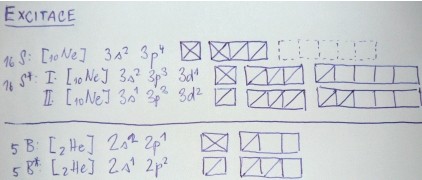 EXCITACE
16 S: [10Ne] 3s² 3p⁴
16 S* I: [10Ne] 3s² 3p³ 3d¹
II: [10Ne] 3s¹ 3p³ 3d²
5 B: [2He] 2s² 2p¹
5 B*: [2He] 2s¹ 2p²